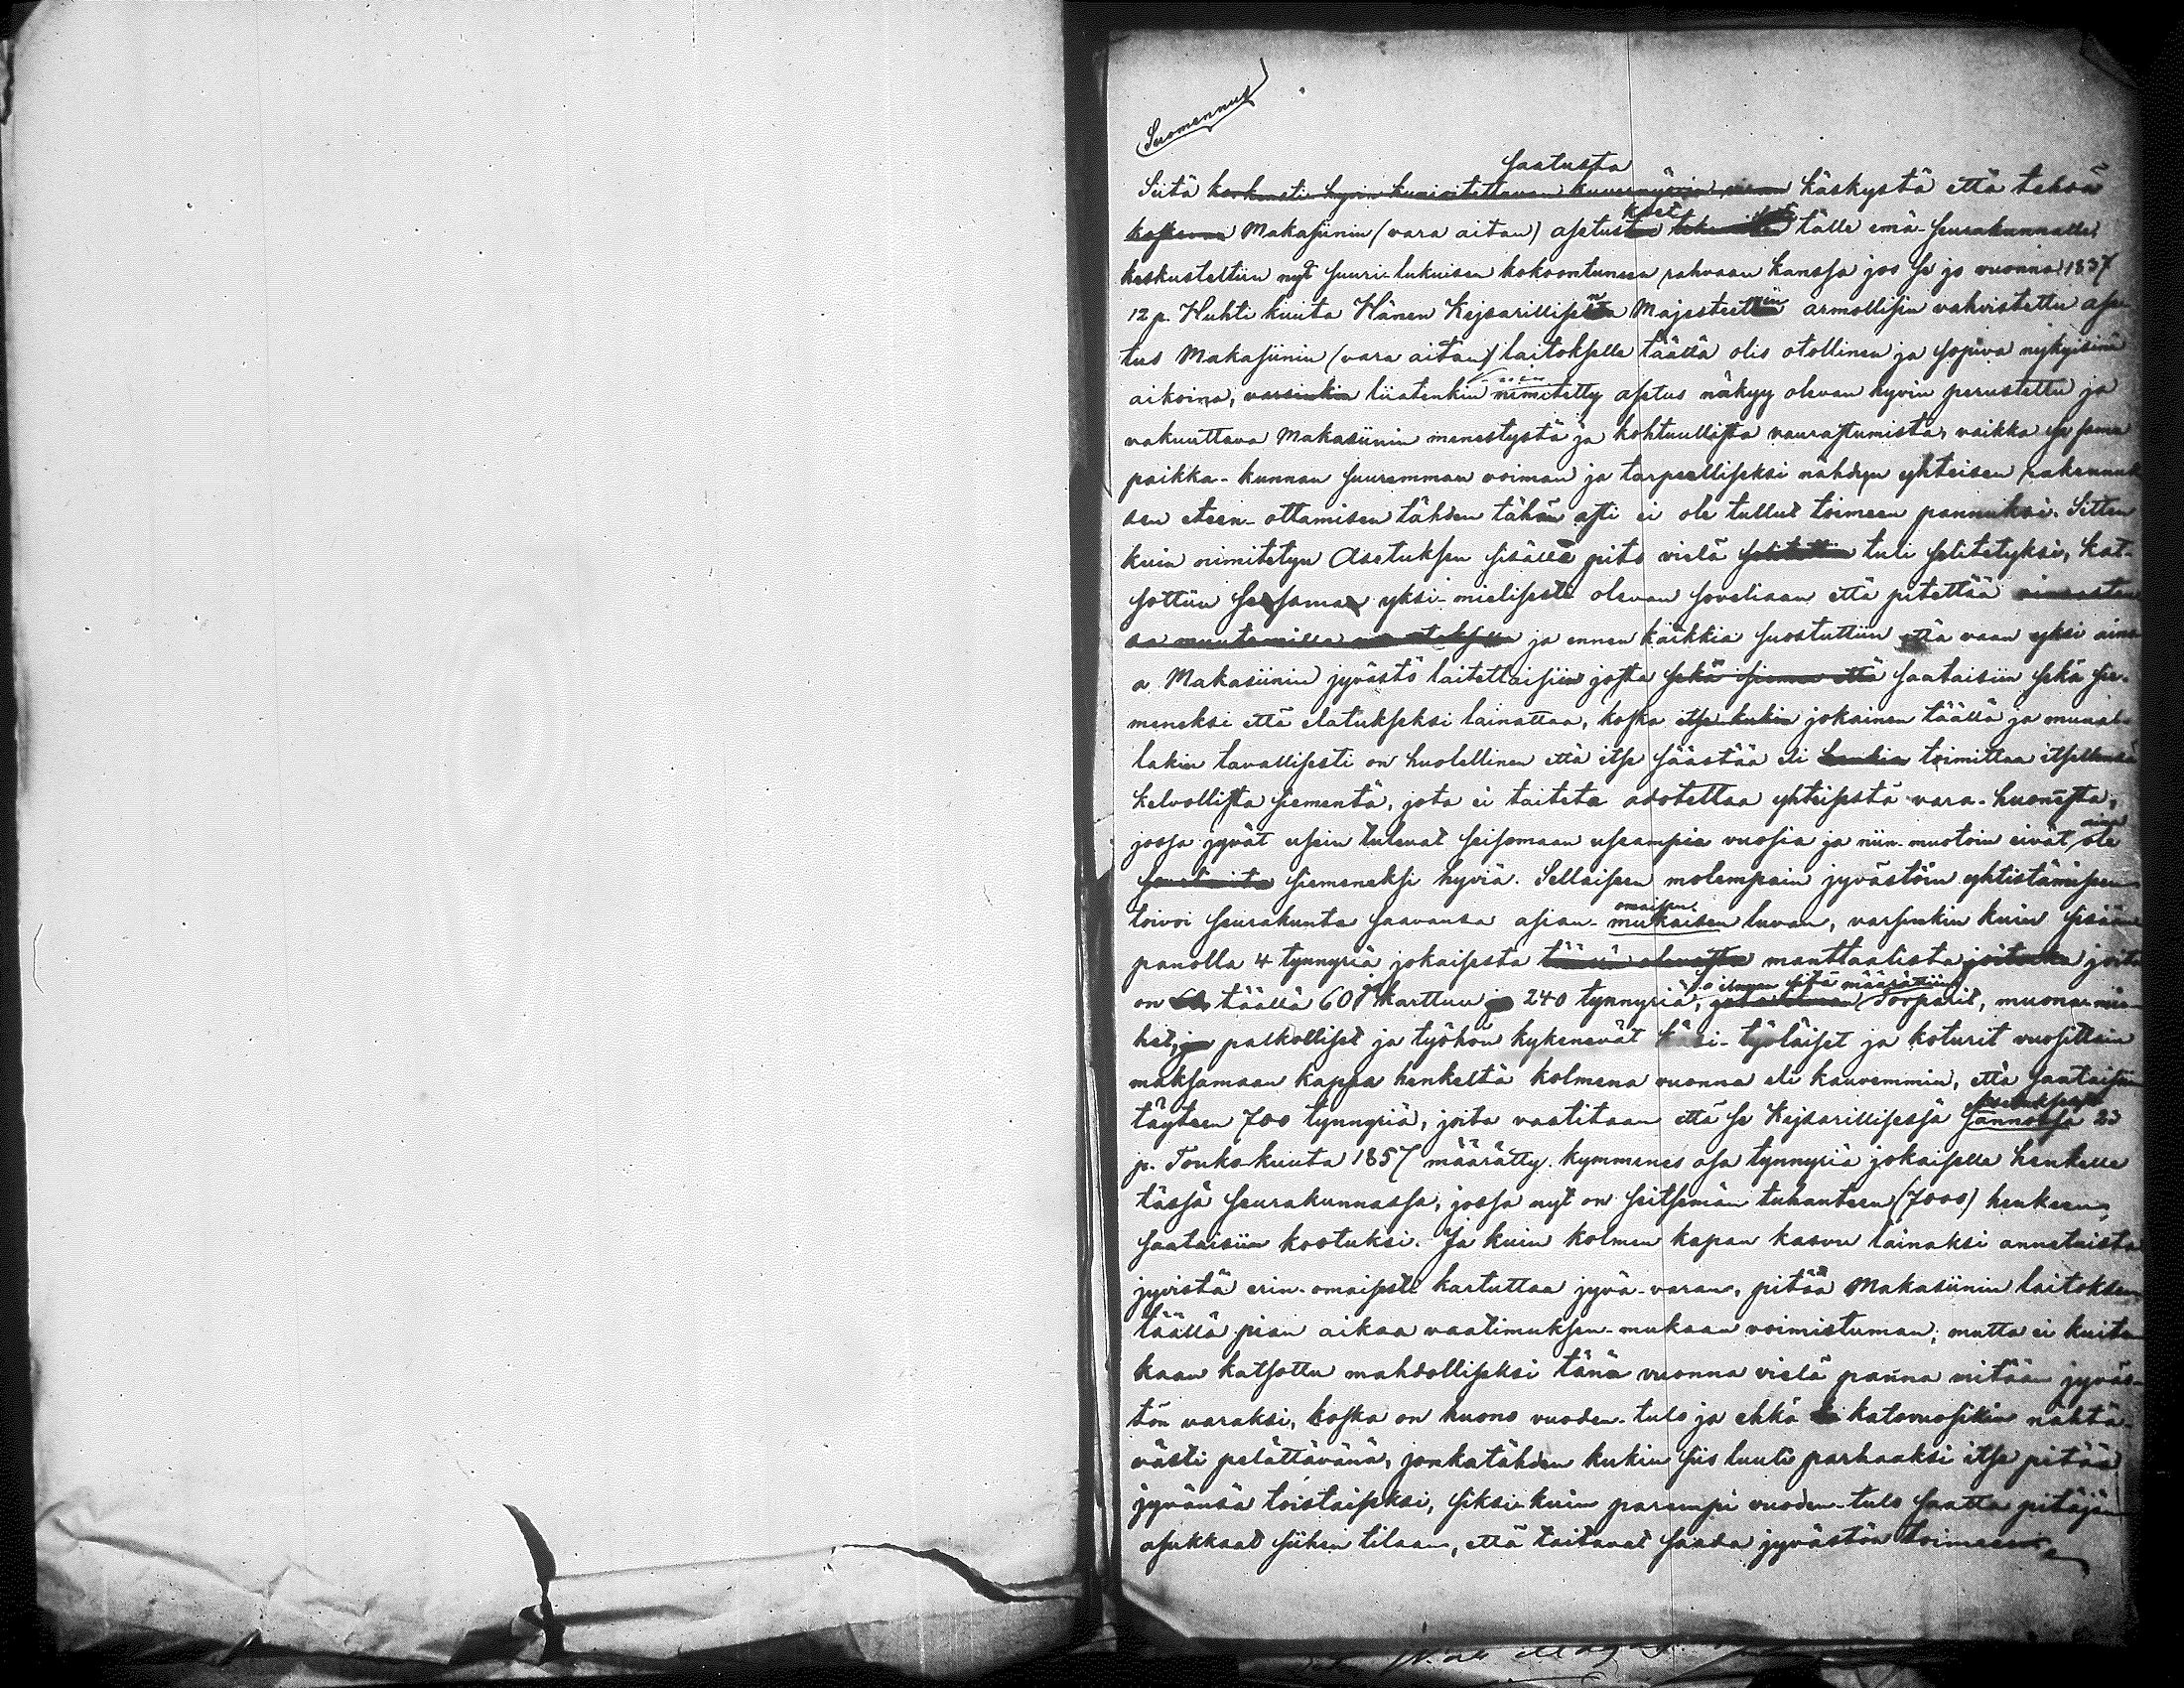 Suomennus
saatusta
Siitä korkeasti hyvin kunnioitettavan kuvernöörin viran käskystä että tehdä
kset
koskevan Makasiinin (vara aitan) asetusten tekemiset tälle emä-seurakunnalle,
keskusteltiin nyt suuri-lukuisen kokoontuneen rahvaan kanssa jos se jo vuonna 1837
12 p. Huhti kuuta Hänen Kejsarillisen Majesteetin armollisin vahvistettu ase
tus Makasiinin (vara aitan) laitokselle täällä olis otollinen ja sopiva nykyisinä
aikoina, varsinkin liiatenkin nimitetty asetus näkyy olevan hyvin perustettu ja
vakuuttava Makasiinin menestystä ja kohtuullista vaurastumista, vaikka se sama
paikka-kunnan suuremman voiman ja tarpeelliseksi nähdyn yhteisen rakennuk
sen eteen-ottamisen tähden tähän asti ei ole tullut toimeen pannuksi. Sitten
kuin nimitetyn Asetuksen sisällä pito vielä selitettiin tuli selitetyksi, kat-
sottiin se sama yksi-mielisesti olevan soveliaan että pitettää
ja ennen kaikkia suostuttiin että vaan yksi aino
a Makasiinin jyvästö laitettaisiin josta sekä siemen että saataisiin sekä sie-
meneksi että elatukseksi lainattaa, koska itse kukin jokainen täällä ja muual-
lakin tavallisesti on huolellinen että itse säästää eli hankia toimittaa itsellensä
kelvollista siementä, jota ei taiteta odotettaa yhteisestä vara-huoneesta,
aina
jossa jyvät usein tulevat seisomaan useampia vuosia ja niin-muotoin eivät ole
siemeneksi hyviä. Sellaiseen molempain jyvästöin yhtistämiseen
omaisen
toivoi seurakunta saavansa asian-mukaisen luvan, varsinkin kuin sisään
panolla 4 tynnyriä jokaisesta täällä olevasta manttaalista joitoska joita
ja ilman sitä määrättiin
on täällä 60 karttuu 240 tynnyriä, Torparit, muona-mie
het, ja palkolliset ja työhön kykenevät käsi-työläiset ja koturit vuosittain
maksamaan kappa henkeltä kolmena vuonna eli kauvemmin, että saataisiin
asetuksessa
täyteen 700 tynnyriä, joita vaatitaan että se Kejsarillisessä sännössä 23
p. Touko-kuuta 1857 määrätty kymmenes osa tynnyriä jokaiselle henkelle
tässä seurakunnassa, jossa nyt on seitsemän tuhanteen (7000) henkeen,
saataisiin kootuksi. Ja kuin kolmen kapan kasvu lainaksi annetuista
jyvistä erin-omaisesti kartuttaa jyvä-varan, pitää Makasiinin laitoksen
täällä pian aikaa vaatimuksen-mukaan voimistuman, mutta ei kuiten
kaan katsottu mahdolliseksi tänä vuonna vielä panna mitään jyväs-
tön varaksi, koska on huono vuoden-tulo ja ehkä katovuosikin nähtä-
västi pelättävänä, jonkatähden kukin siis luuli parhaaksi itse pitää
jyvänsä toistaiseksi, siksi-kuin parempi vuoden-tulo saatta pitäjän
asukkaat siihen tilaan, että taitavat saada jyvästön toimeen.